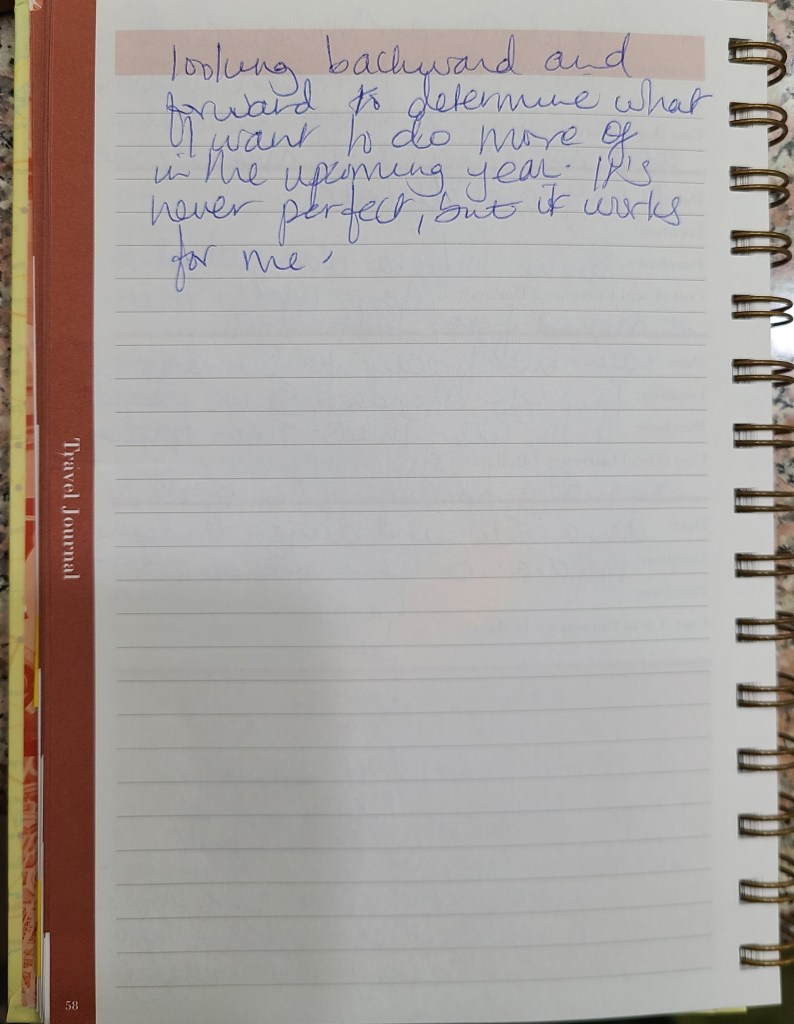 looking backward and
forward to determine what
I want to do more of
in the upcoming year. It's
never perfect, but it works
for me.
Travel Journal
58